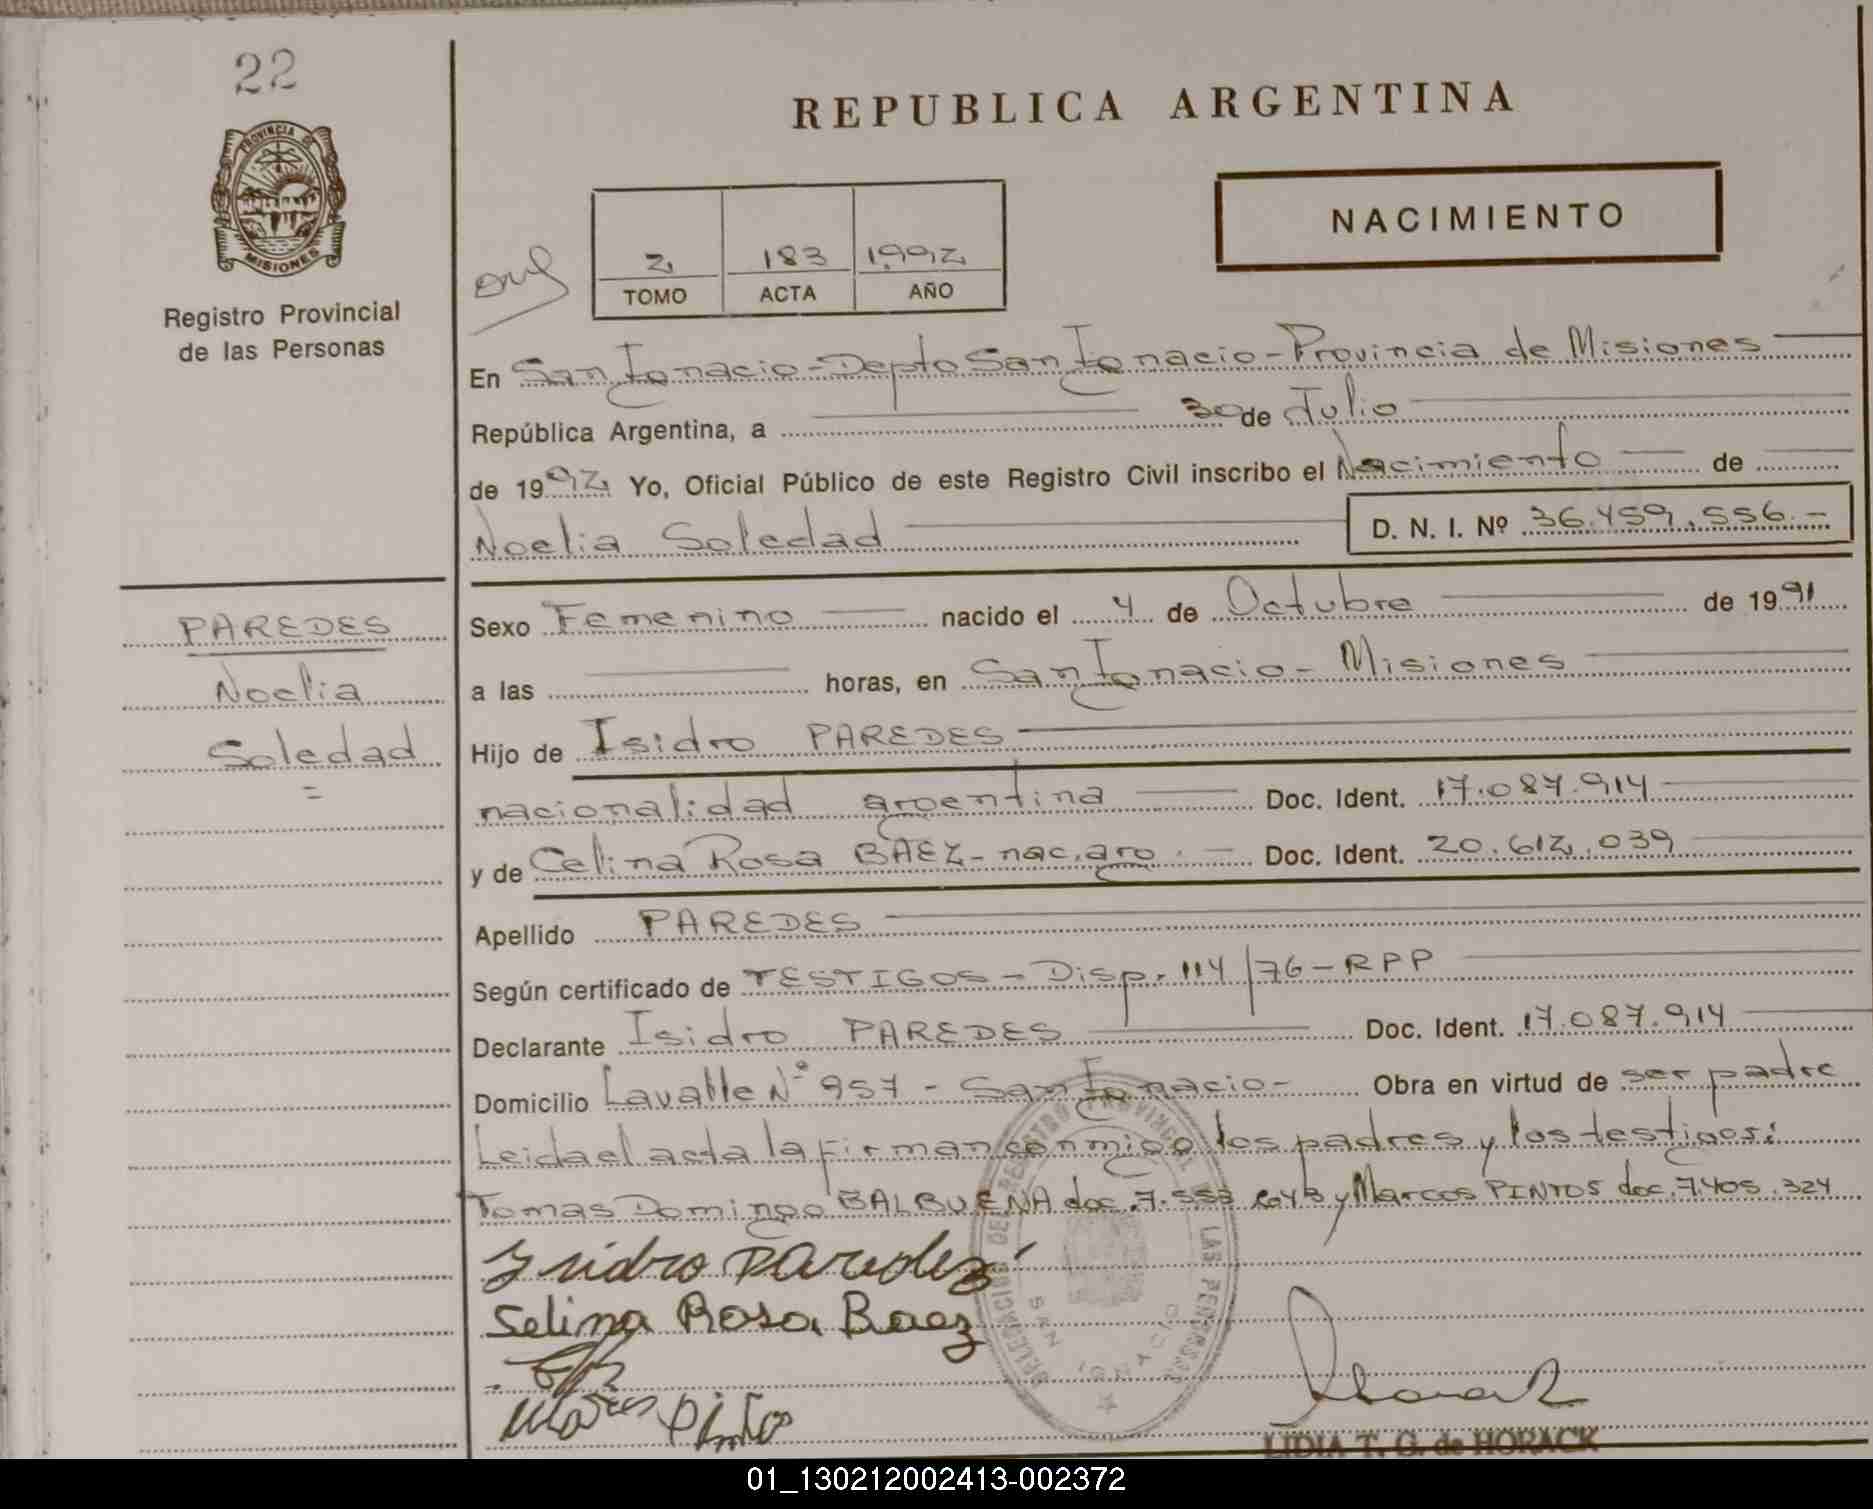 22
PROVINCIA DE
MISIONES
Registro Provincial
de las Personas
REPUBLICA ARGENTINA
NACIMIENTO
2 183 1992
TOMO ACTA AÑO
En San Ignacio - Depto San Ignacio - Provincia de Misiones
República Argentina, a 30 de Julio
de 1992 Yo, Oficial Público de este Registro Civil inscribo el Nacimiento de
Noelia Soledad D. N. I. Nº 36.459.556.-
PAREDES
Noelia
Soledad
=
Sexo Femenino nacido el 4 de Octubre de 1991
a las horas, en San Ignacio - Misiones
Hijo de Isidro PAREDES
nacionalidad argentina Doc. Ident. 17.087.914
y de Celina Rosa BAEZ - nac. arg. - Doc. Ident. 20.612.039
Apellido PAREDES
Según certificado de TESTIGOS - Disp. 114/76 - RPP
Declarante Isidro PAREDES Doc. Ident. 17.087.914
Domicilio Lavalle Nº 957 - San Ignacio - Obra en virtud de ser padre
Leida el acta la firman conmigo los padres y los testigos:
Tomas Domingo BALBUENA doc. 7.553. y Marcos PINTOS doc. 7.405.324
Isidro Paredez
Selina Rosa Baez
Marcos Pinto
DELEGACION DEL REGISTRO PROVINCIAL DE LAS PERSONAS
SAN IGNACIO
LIDIA T. G. de HORACK
01_130212002413-002372